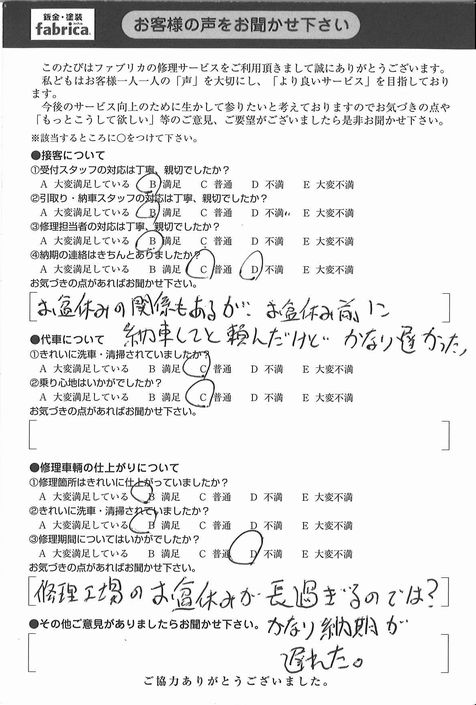 鈑金・塗装
fabrica.
お客様の声をお聞かせ下さい
このたびはファブリカの修理サービスをご利用頂きまして誠にありがとうございます。
私どもはお客様一人一人の「声」を大切にし、「より良いサービス」を目指しており
ます。
今後のサービス向上のために生かして参りたいと考えておりますのでお気づきの点や
「もっとこうして欲しい」等のご意見、ご要望がございましたら是非お聞かせ下さい。
※該当するところに○をつけて下さい。
●接客について
①受付スタッフの対応は丁寧、親切でしたか?
A 大変満足している B 満足 C 普通 D 不満 E 大変不満
②引取り・納車スタッフの対応は丁寧、親切でしたか?
A 大変満足している B 満足 C 普通 D 不満 E 大変不満
③修理担当者の対応は丁寧、親切でしたか?
A 大変満足している B 満足 C 普通 D 不満 E 大変不満
④納期の連絡はきちんとありましたか?
A 大変満足している B 満足 C 普通 D 不満 E 大変不満
お気づきの点があればお聞かせ下さい。
お盆休みの関係もあるが、お盆休み前に
納車してと頼んだけど かなり遅かった
●代車について
①きれいに洗車・清掃されていましたか?
A 大変満足している B 満足 C 普通 D 不満 E 大変不満
②乗り心地はいかがでしたか?
A 大変満足している B 満足 C 普通 D 不満 E 大変不満
お気づきの点があればお聞かせ下さい。
●修理車輌の仕上がりについて
①修理箇所はきれいに仕上がっていましたか?
A 大変満足している B 満足 C 普通 D 不満 E 大変不満
②きれいに洗車・清掃されていましたか?
A 大変満足している B 満足 C 普通 D 不満 E 大変不満
③修理期間についてはいかがでしたか?
A 大変満足している B 満足 C 普通 D 不満 E 大変不満
お気づきの点があればお聞かせ下さい。
修理工場のお盆休みが長過ぎるのでは?
●その他ご意見がありましたらお聞かせ下さい。
かなり納期が
遅れた。
ご協力ありがとうございました。